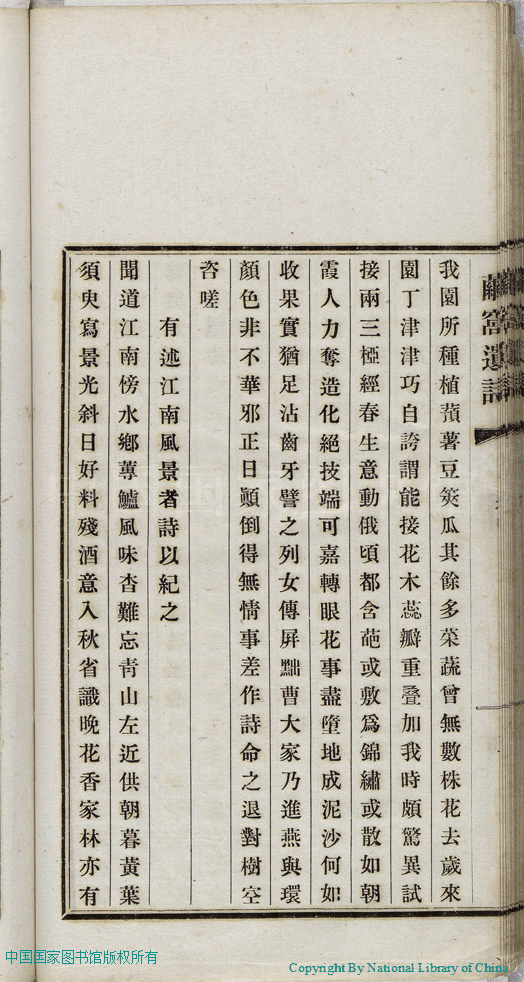 繭窩遺詩
我園所種植蕷薯豆筴瓜其餘多菜蔬曾無數株花去歲來
園丁津津巧自誇謂能接花木蕊瓣重疊加我時頗驚異試
接兩三椏經春生意動俄頃都含葩或敷爲錦繡或散如朝
霞人力奪造化絕技端可嘉轉眼花事盡墮地成泥沙何如
收果實猶足沾齒牙譬之列女傳屛黜曹大家乃進燕與環
顏色非不華邪正日顚倒得無情事差作詩命之退對樹空
咨嗟
有述江南風景者詩以紀之
聞道江南傍水鄉蓴鱸風味杳難忘靑山左近供朝暮黃葉
須臾寫景光斜日好料殘酒意入秋省識晚花香家林亦有
中国国家图书馆版权所有
Copyright By National Library of China